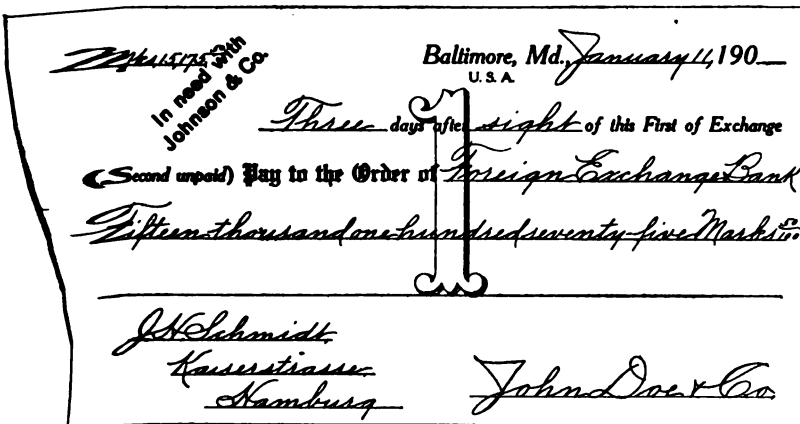 Mks 15175 50
In need with
Johnson & Co.
Baltimore, Md., January 11, 190
U.S.A.
Three days after sight of this First of Exchange
(Second unpaid) Pay to the Order of Foreign Exchange Bank
Fifteen thousand one hundred seventy-five Marks 50/100
J H Schmidt
Kaiserstrasse
Hamburg
John Doe & Co